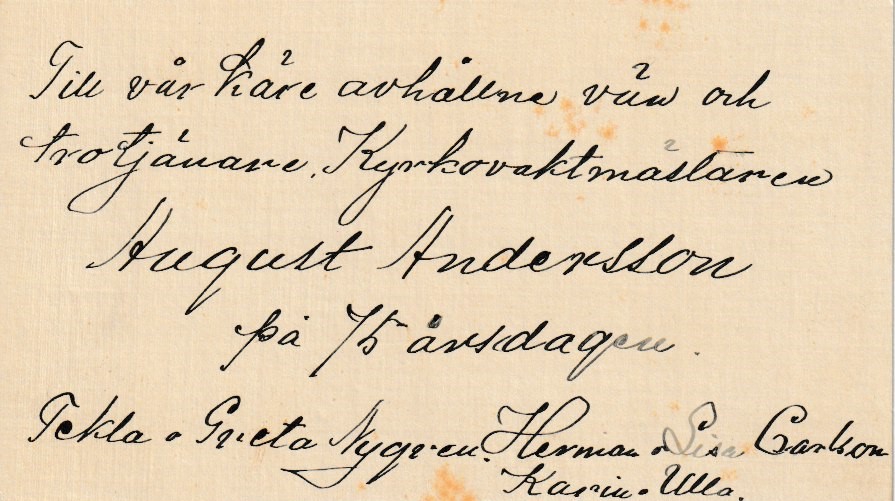 Till vår käre avhållne vän och
trotjänare, Kyrkovaktmästaren
August Andersson
på 75 årsdagen.
Tekla o Greta Nygren. Herman o Lisa Carlson
Karin o Ulla.